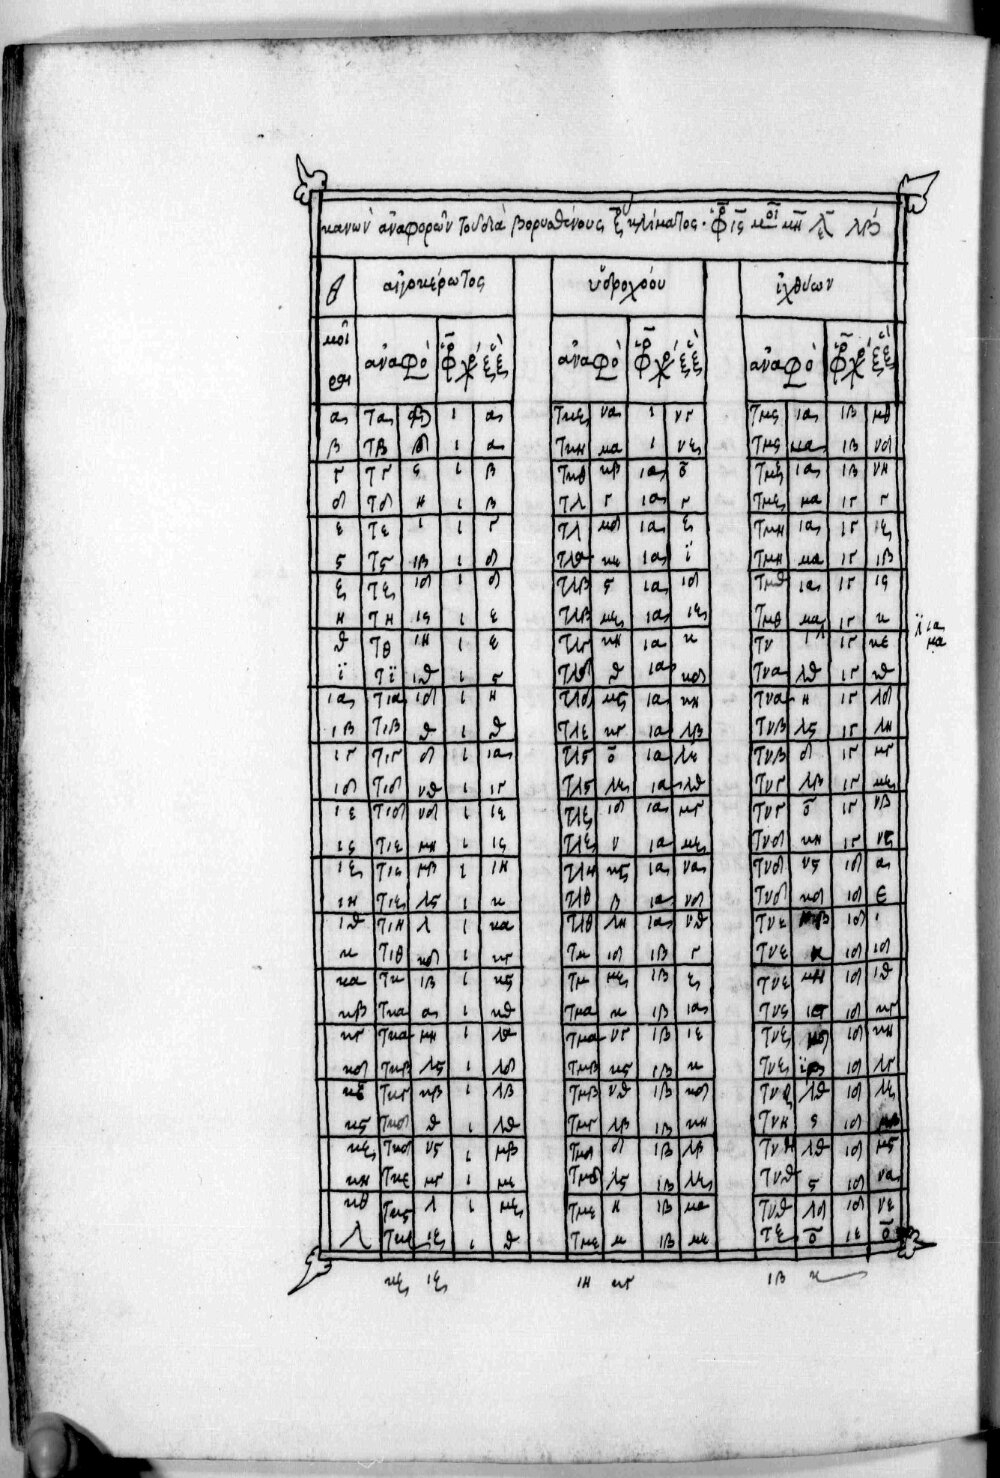 κανὼν ἀναφορῶν τοῦ διὰ βορυσθένους ζ κλίματος · ὡρ ις μοι μη λε λβ
θ αἰγοκέρωτος ὑδροχόου ἰχθύων
μοῖραι ἀναφο ὡρ χρ ἑξ ἀναφο ὡρ χρ ἑξ ἀναφο ὡρ χρ ἑξ
α τα β ι α τκζ να ι νγ τμς ια ιβ μθ
β τβ δ ι α τκη μα ι νζ τμς μα ιβ νδ
γ τγ ς ι β τκθ κβ ια ο τμζ ια ιβ νη
δ τδ η ι β τλ γ ια γ τμζ μα ιγ γ
ε τε ι ι γ τλ μδ ια ζ τμη ια ιγ ιζ
ς τς ιβ ι δ τλα κε ια ι τμη μα ιγ ιβ
ζ τζ ιδ ι δ τλβ ς ια ιδ τμθ ια ιγ ις
η τη ις ι ε τλβ μζ ια ιζ τμθ μα ιγ κ
ι ια
μα
θ τθ ιη ι ε τλγ κη ια κ τν ιγ κε
ι τι ιθ ι ς τλδ θ ια κδ τνα λθ ιγ κθ
ια τια ιδ ι η τλδ μς ια κη τνα η ιγ λδ
ιβ τιβ θ ι θ τλε κγ ια λβ τνβ λς ιγ λη
ιγ τιγ δ ι ια τλς ο ια λε τνβ δ ιγ μγ
ιδ τιδ νθ ι ιγ τλς λζ ια λθ τνγ λβ ιγ μζ
ιε τιδ νδ ι ιε τλζ ιδ ια μγ τνγ ο ιγ νβ
ις τιε μη ι ις τλζ ν ια μζ τνδ κη ιγ νς
ιζ τις μβ ι ιη τλη κς ια να τνδ νς ιδ α
ιη τιζ λς ι κ τλθ β ια νδ τνδ κδ ιδ ε
ιθ τιη λ ι κα τλθ λη ια νθ τνε νβ ιδ ι
κ τιθ κδ ι κγ τμ ιδ ιβ γ τνε κ ιδ ιδ
κα τκ ιβ ι κς τμ μζ ιβ ζ τνε μη ιδ ιθ
κβ τκα α ι κθ τμα κ ιβ ια τνς ις ιδ κγ
κγ τκα μη ι λα τμα νγ ιβ ιε τνζ μδ ιδ κη
κδ τκβ λς ι λδ τμβ κς ιβ κ τνζ ιδ λγ
κε τκγ κβ ι λβ τμβ νθ ιβ κδ τνζ λθ ιδ λζ
κς τκδ θ ι λθ τμγ λβ ιβ κη τνη ς ιδ μβ
κζ τκδ νς ι μβ τμδ δ ιβ λβ τνη λθ ιδ μς
κη τκε μγ ι με τμδ λς ιβ λζ τνθ ς ιδ να
κθ τκς λ ι μζ τμε η ιβ μα τνθ λδ ιδ νε
λ τκζ ιζ ι θ τμε μ ιβ με τξ ο ιε ο
κζ ιζ ιη κγ ιβ κ